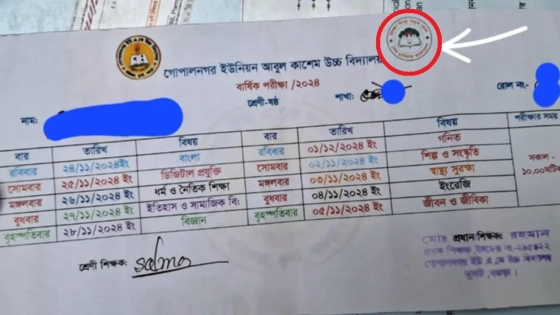 গোপালনগর ইউনিয়ন আবুল কাশেম উচ্চ বিদ্যালয়
বার্ষিক পরীক্ষা /২০২৪
শ্রেণী-ষষ্ঠ শাখা: রোল নং-
নাম:
বার তারিখ বিষয় বার তারিখ বিষয় পরীক্ষার সময়
রবিবার ২৪/১১/২০২৪ইং বাংলা রবিবার ০১/১২/২০২৪ইং গনিত সকাল -
সোমবার ২৫/১১/২০২৪ইং ডিজিটাল প্রযুক্তি সোমবার ০২/১১/২০২৪ইং শিল্প ও সংস্কৃতি ১০.০০ঘটি
মঙ্গলবার ২৬/১১/২০২৪ইং ধর্ম ও নৈতিক শিক্ষা মঙ্গলবার ০৩/১১/২০২৪ইং স্বাস্থ্য সুরক্ষা
বুধবার ২৭/১১/২০২৪ইং ইতিহাস ও সামাজিক বি: বুধবার ০৪/১১/২০২৪ইং ইংরেজি
বৃহস্পতিবার ২৮/১১/২০২৪ইং বিজ্ঞান বৃহস্পতিবার ০৫/১১/২০২৪ইং জীবন ও জীবিকা
শ্রেণী শিক্ষক: Salma
প্রধান শিক্ষক: রহমান
প্রধান শিক্ষক